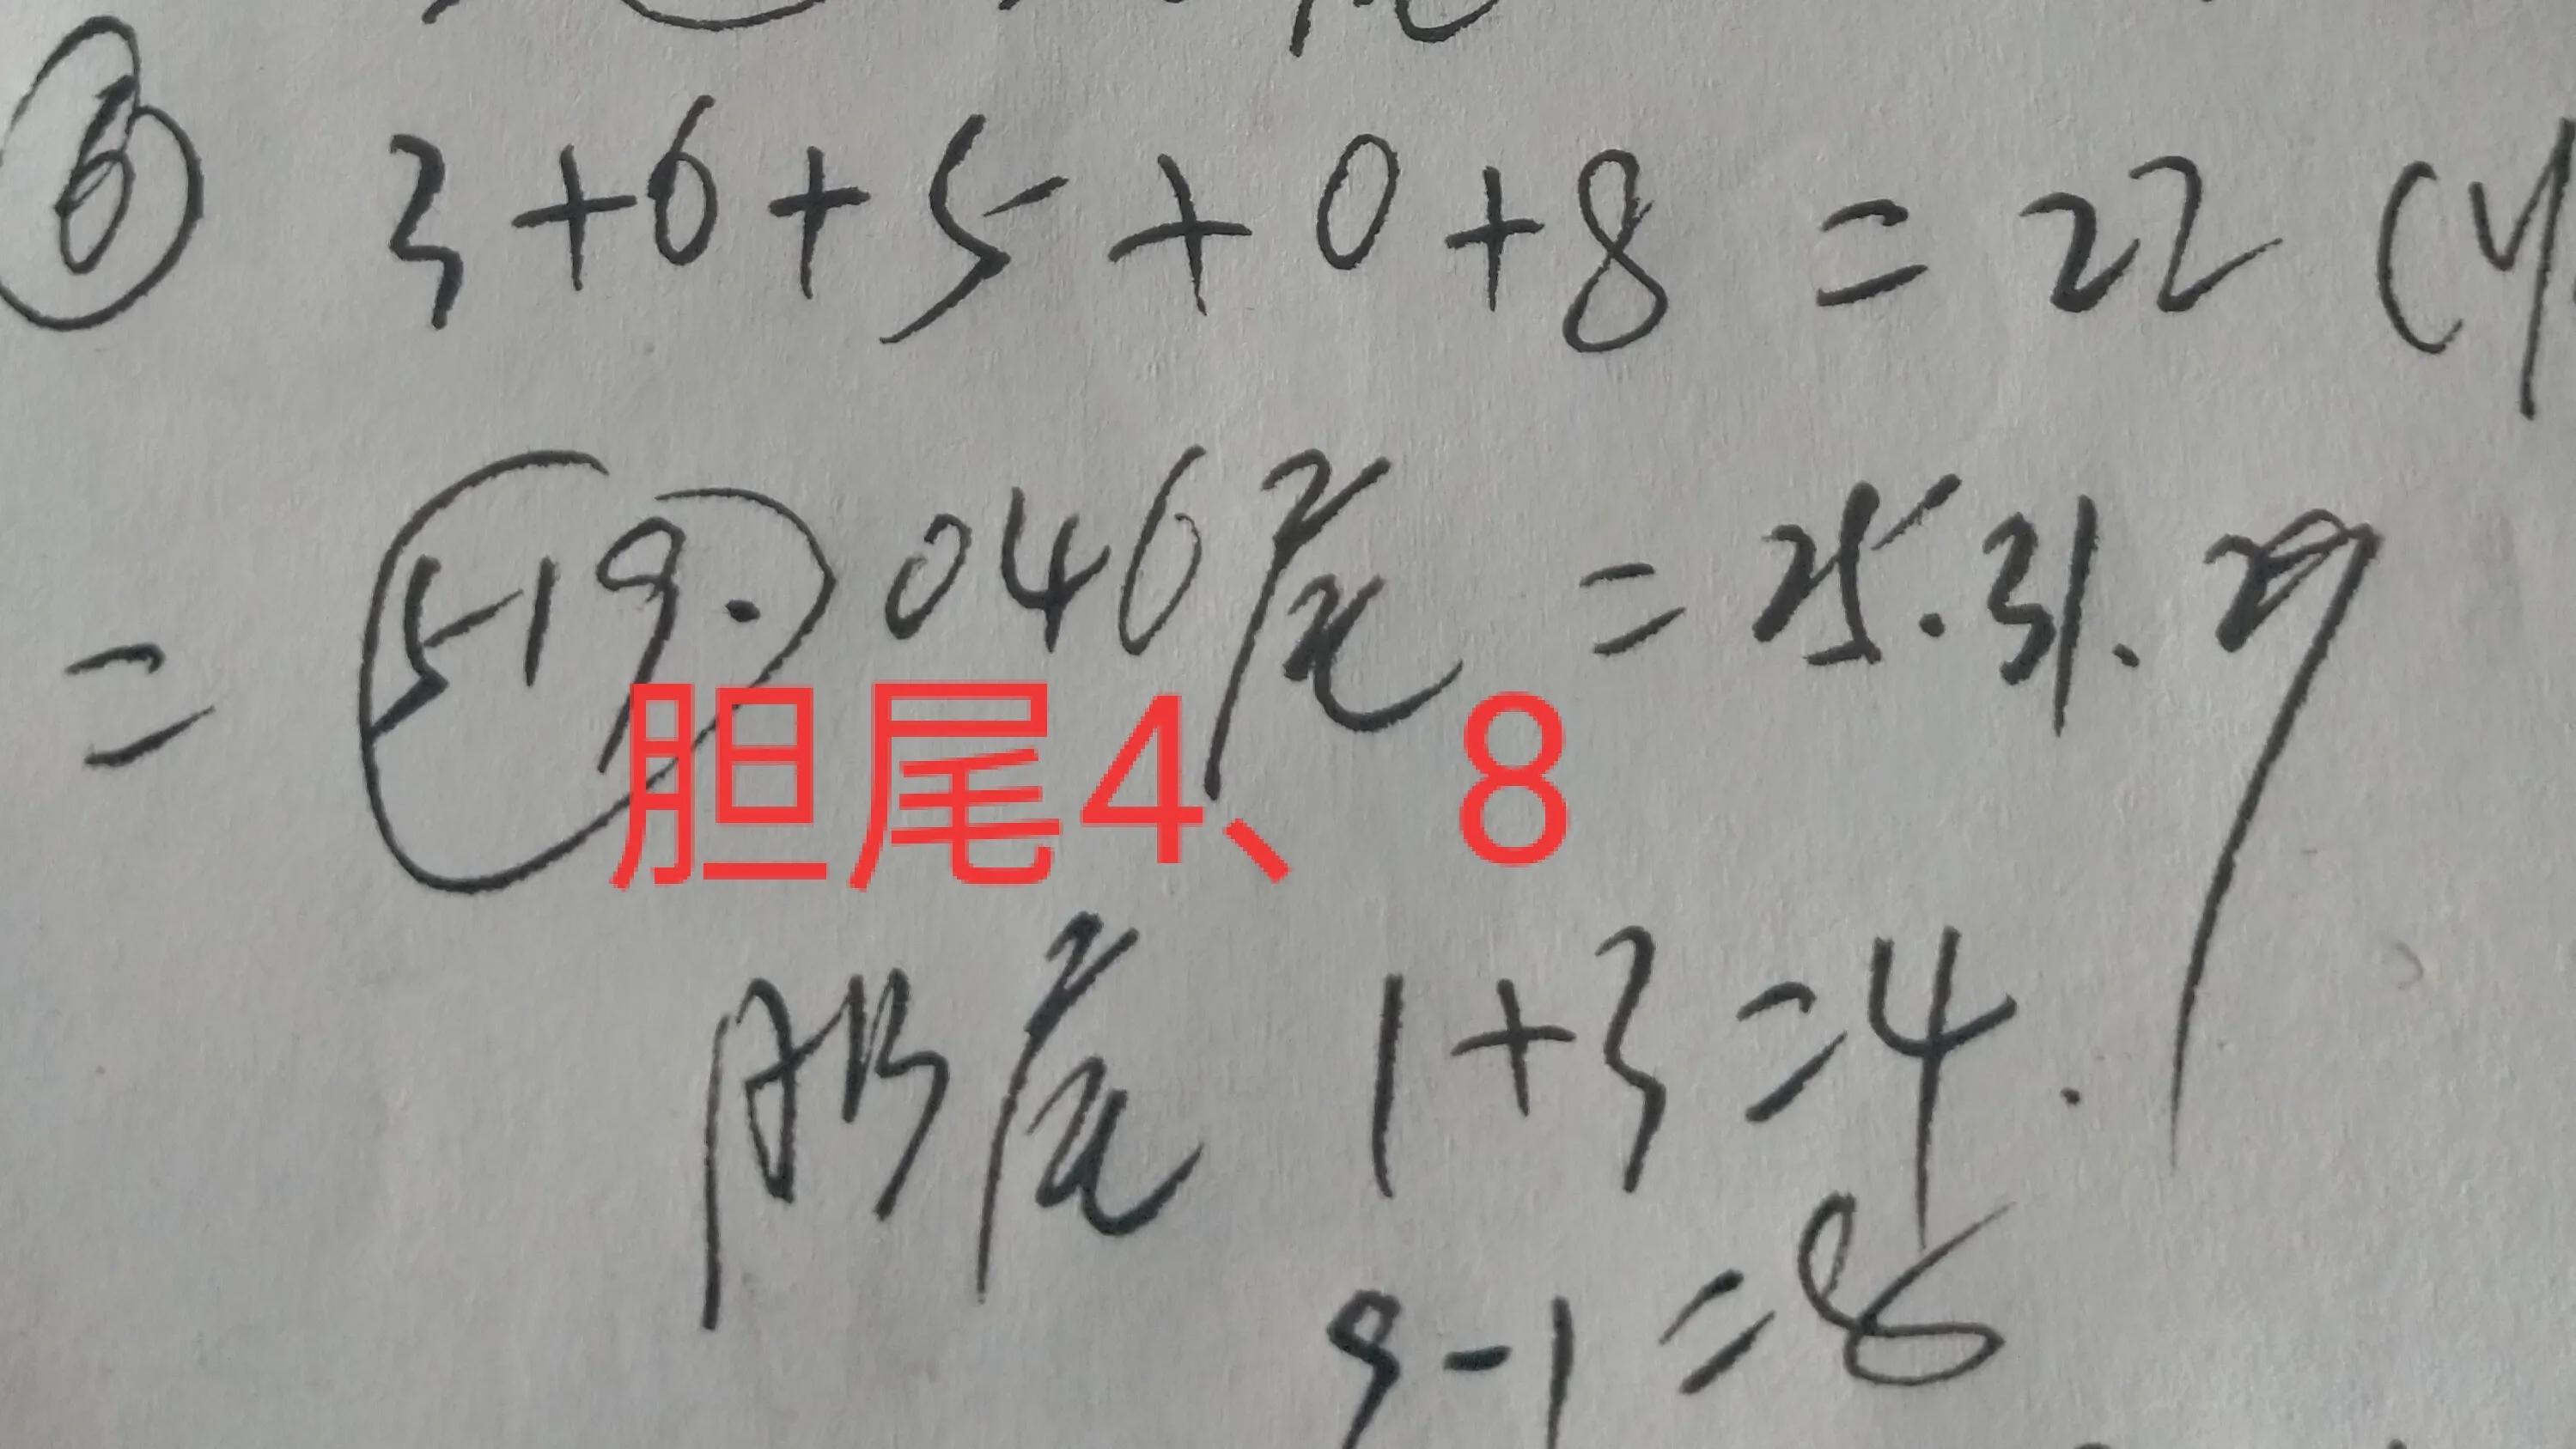 ⑥ 3+6+5+0+8=22(4
=519.046尾=25.31.29
胆尾4、8
AB尾 1+3=4.
9-1=8